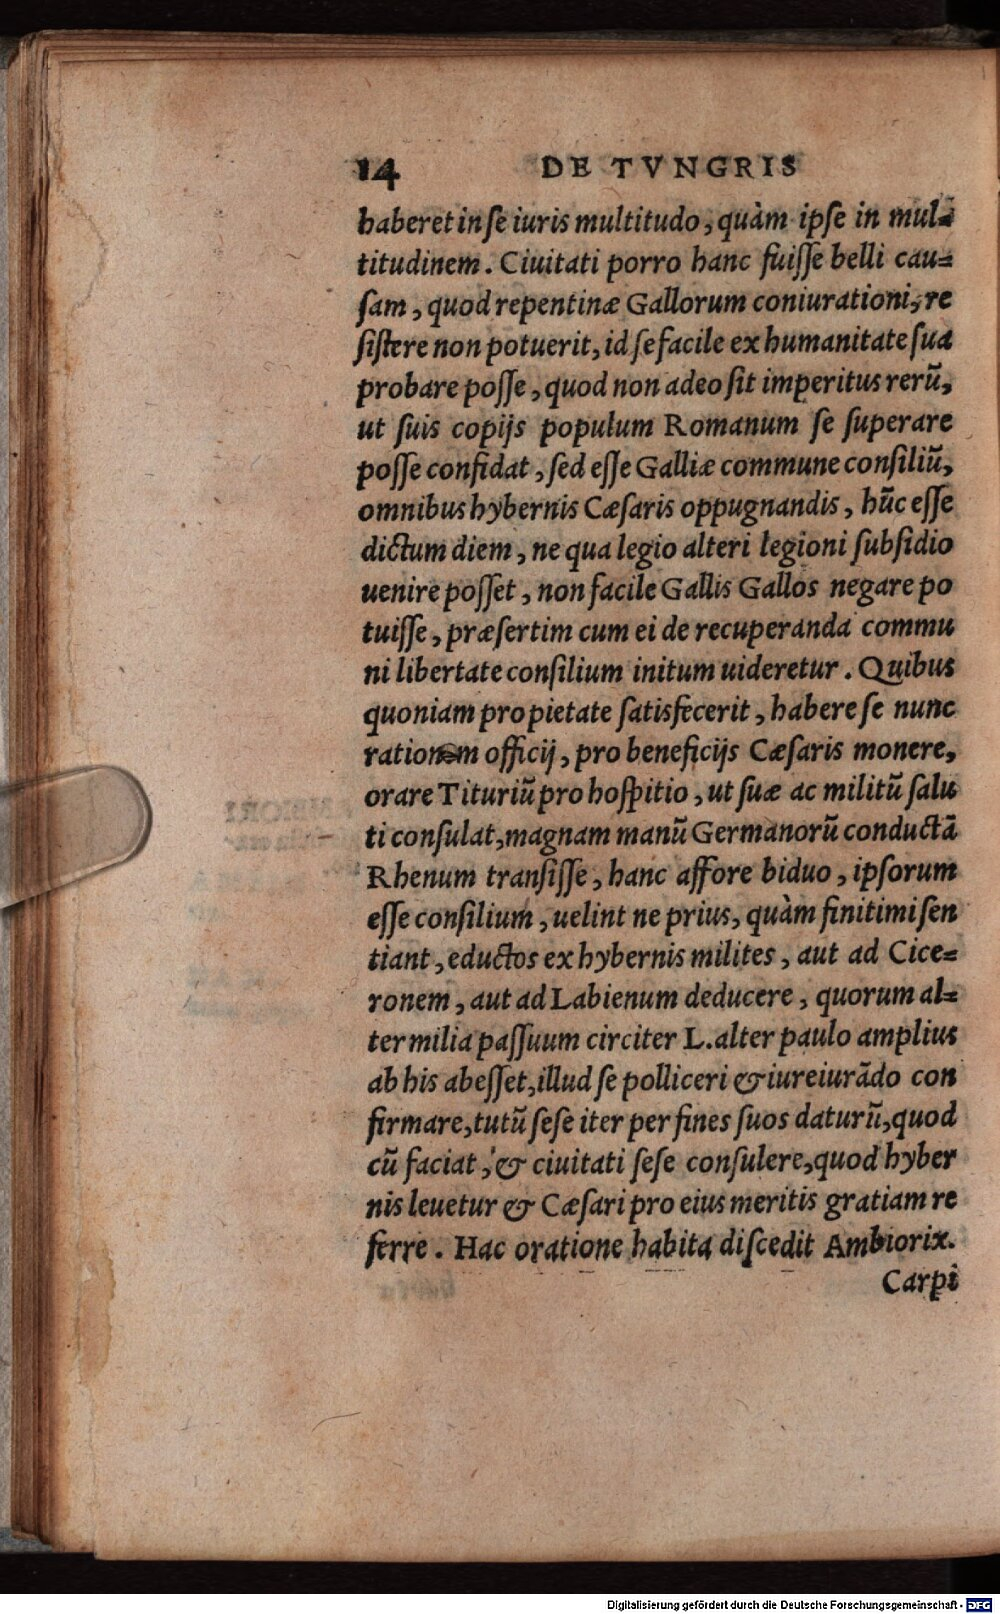 14 DE TVNGRIS
haberet in se iuris multitudo, quàm ipse in mul=
titudinem. Ciuitati porro hanc fuisse belli cau=
sam, quod repentinæ Gallorum coniurationi, re
sistere non potuerit, id se facile ex humanitate sua
probare posse, quod non adeo sit imperitus rerū,
ut suis copijs populum Romanum se superare
posse confidat, sed esse Galliæ commune consiliū,
omnibus hybernis Cæsaris oppugnandis, hūc esse
dictum diem, ne qua legio alteri legioni subsidio
uenire posset, non facile Gallis Gallos negare po
tuisse, præsertim cum ei de recuperanda commu
ni libertate consilium initum uideretur. Quibus
quoniam pro pietate satisfecerit, habere se nunc
rationem officij, pro beneficijs Cæsaris monere,
orare Tituriū pro hospitio, ut suæ ac militū salu
ti consulat, magnam manū Germanorū conductā
Rhenum transisse, hanc affore biduo, ipsorum
esse consilium, uelint ne prius, quàm finitimi sen
tiant, eductos ex hybernis milites, aut ad Cice=
ronem, aut ad Labienum deducere, quorum al=
ter milia passuum circiter L. alter paulo amplius
ab his abesset, illud se polliceri & iureiurādo con
firmare, tutū sese iter per fines suos daturū, quod
cū faciat, & ciuitati sese consulere, quod hyber
nis leuetur & Cæsari pro eius meritis gratiam re
ferre. Hac oratione habita discedit Ambiorix.
Carpi
Digitalisierung gefördert durch die Deutsche Forschungsgemeinschaft - DFG